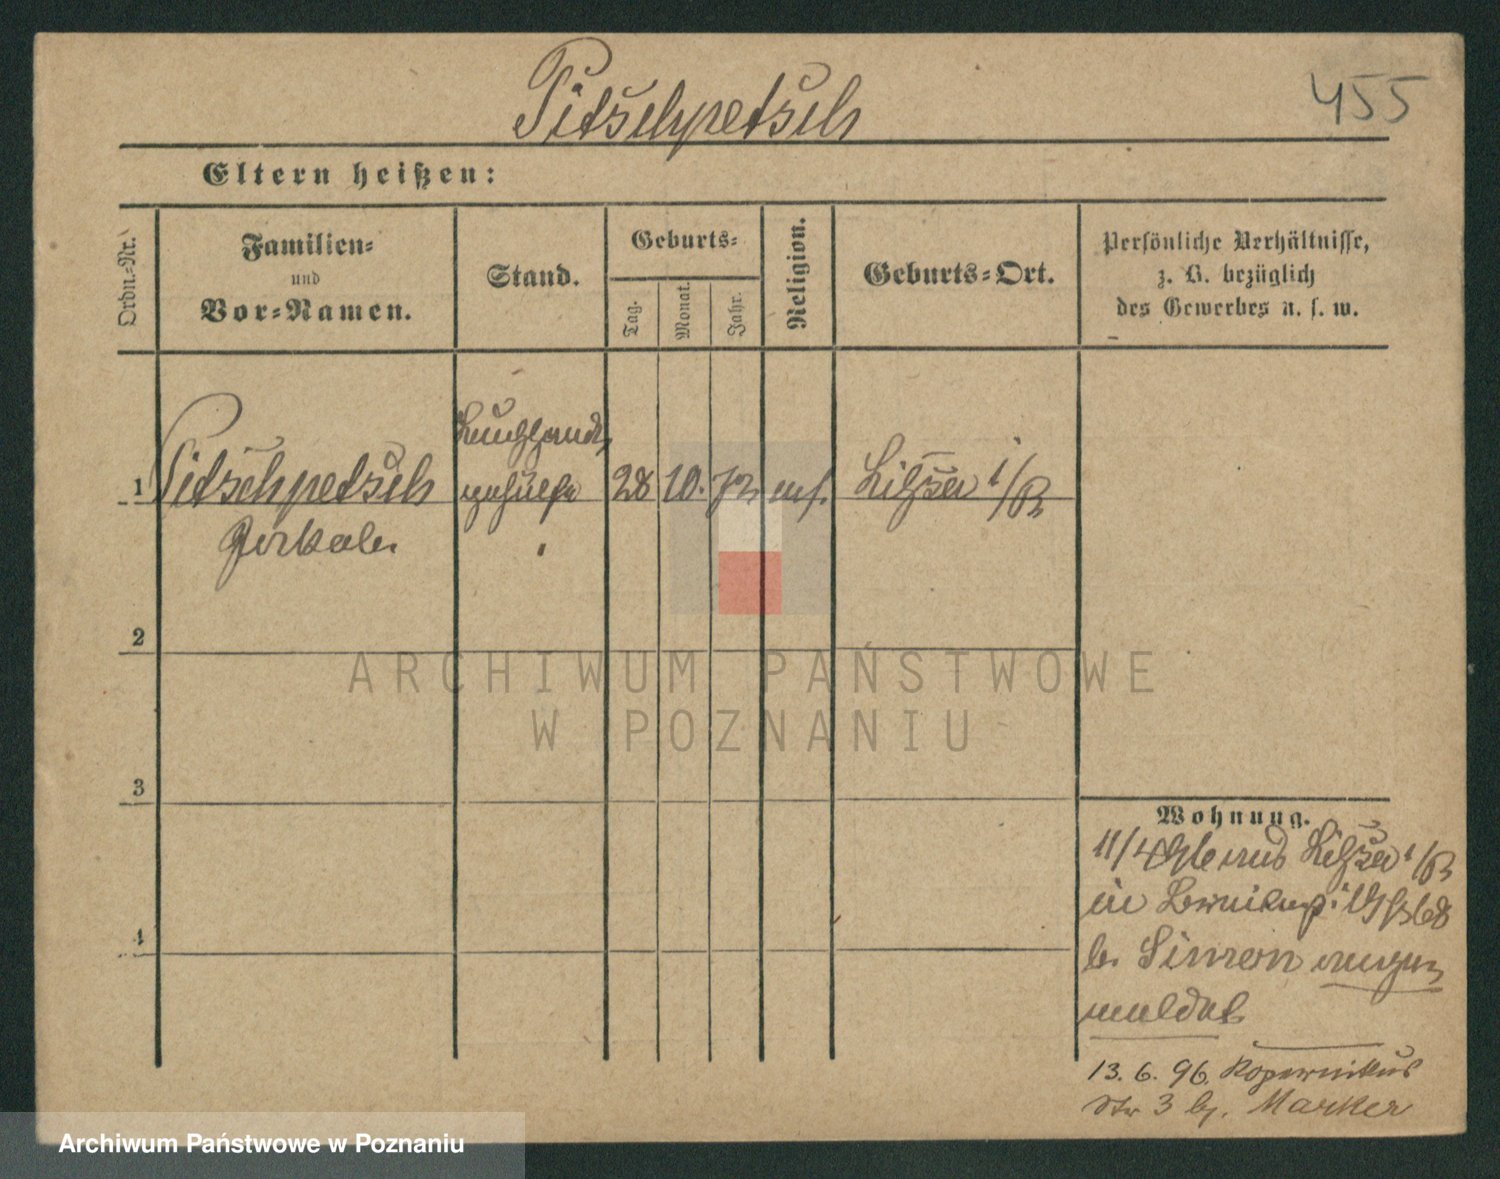 Pitschpetsch
455
Eltern heißen:
Ordn.-Nr.
Familien-
und
Vor-Namen.
Stand.
Geburts-
Tag.
Monat.
Jahr.
Religion.
Geburts-Ort.
Persönliche Verhältnisse,
z. B. bezüglich
des Gewerbes u. s. w.
1
Pitschpetsch
28
10.
72
Lissa i/P.
2
ARCHIWUM PAŃSTWOWE
W POZNANIU
3
Wohnung.
11/4 96 aus Lissa i/P.
in
4
b. Simon angem
meldet
13. 6. 96. Kopernikus
Str 3 b. Marker
Archiwum Państwowe w Poznaniu